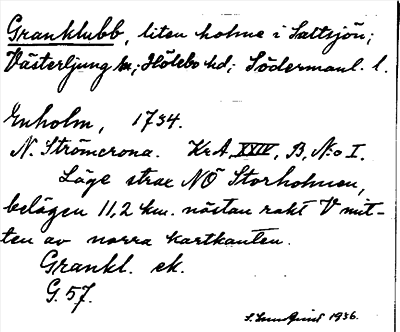 Granklubb, liten holme i Saltsjön;
Västerljung sn; Hölebo hd; Södermanl. l.
Enholm, 1734.
N. Strömcrona. KrA, XXIV, B, N:o I.
Läge strax NÖ Storholmen,
belägen 11,2 km. nästan rakt V mit-
ten av norra kartkanten.
Grankl. ek.
G. 57.
1936.